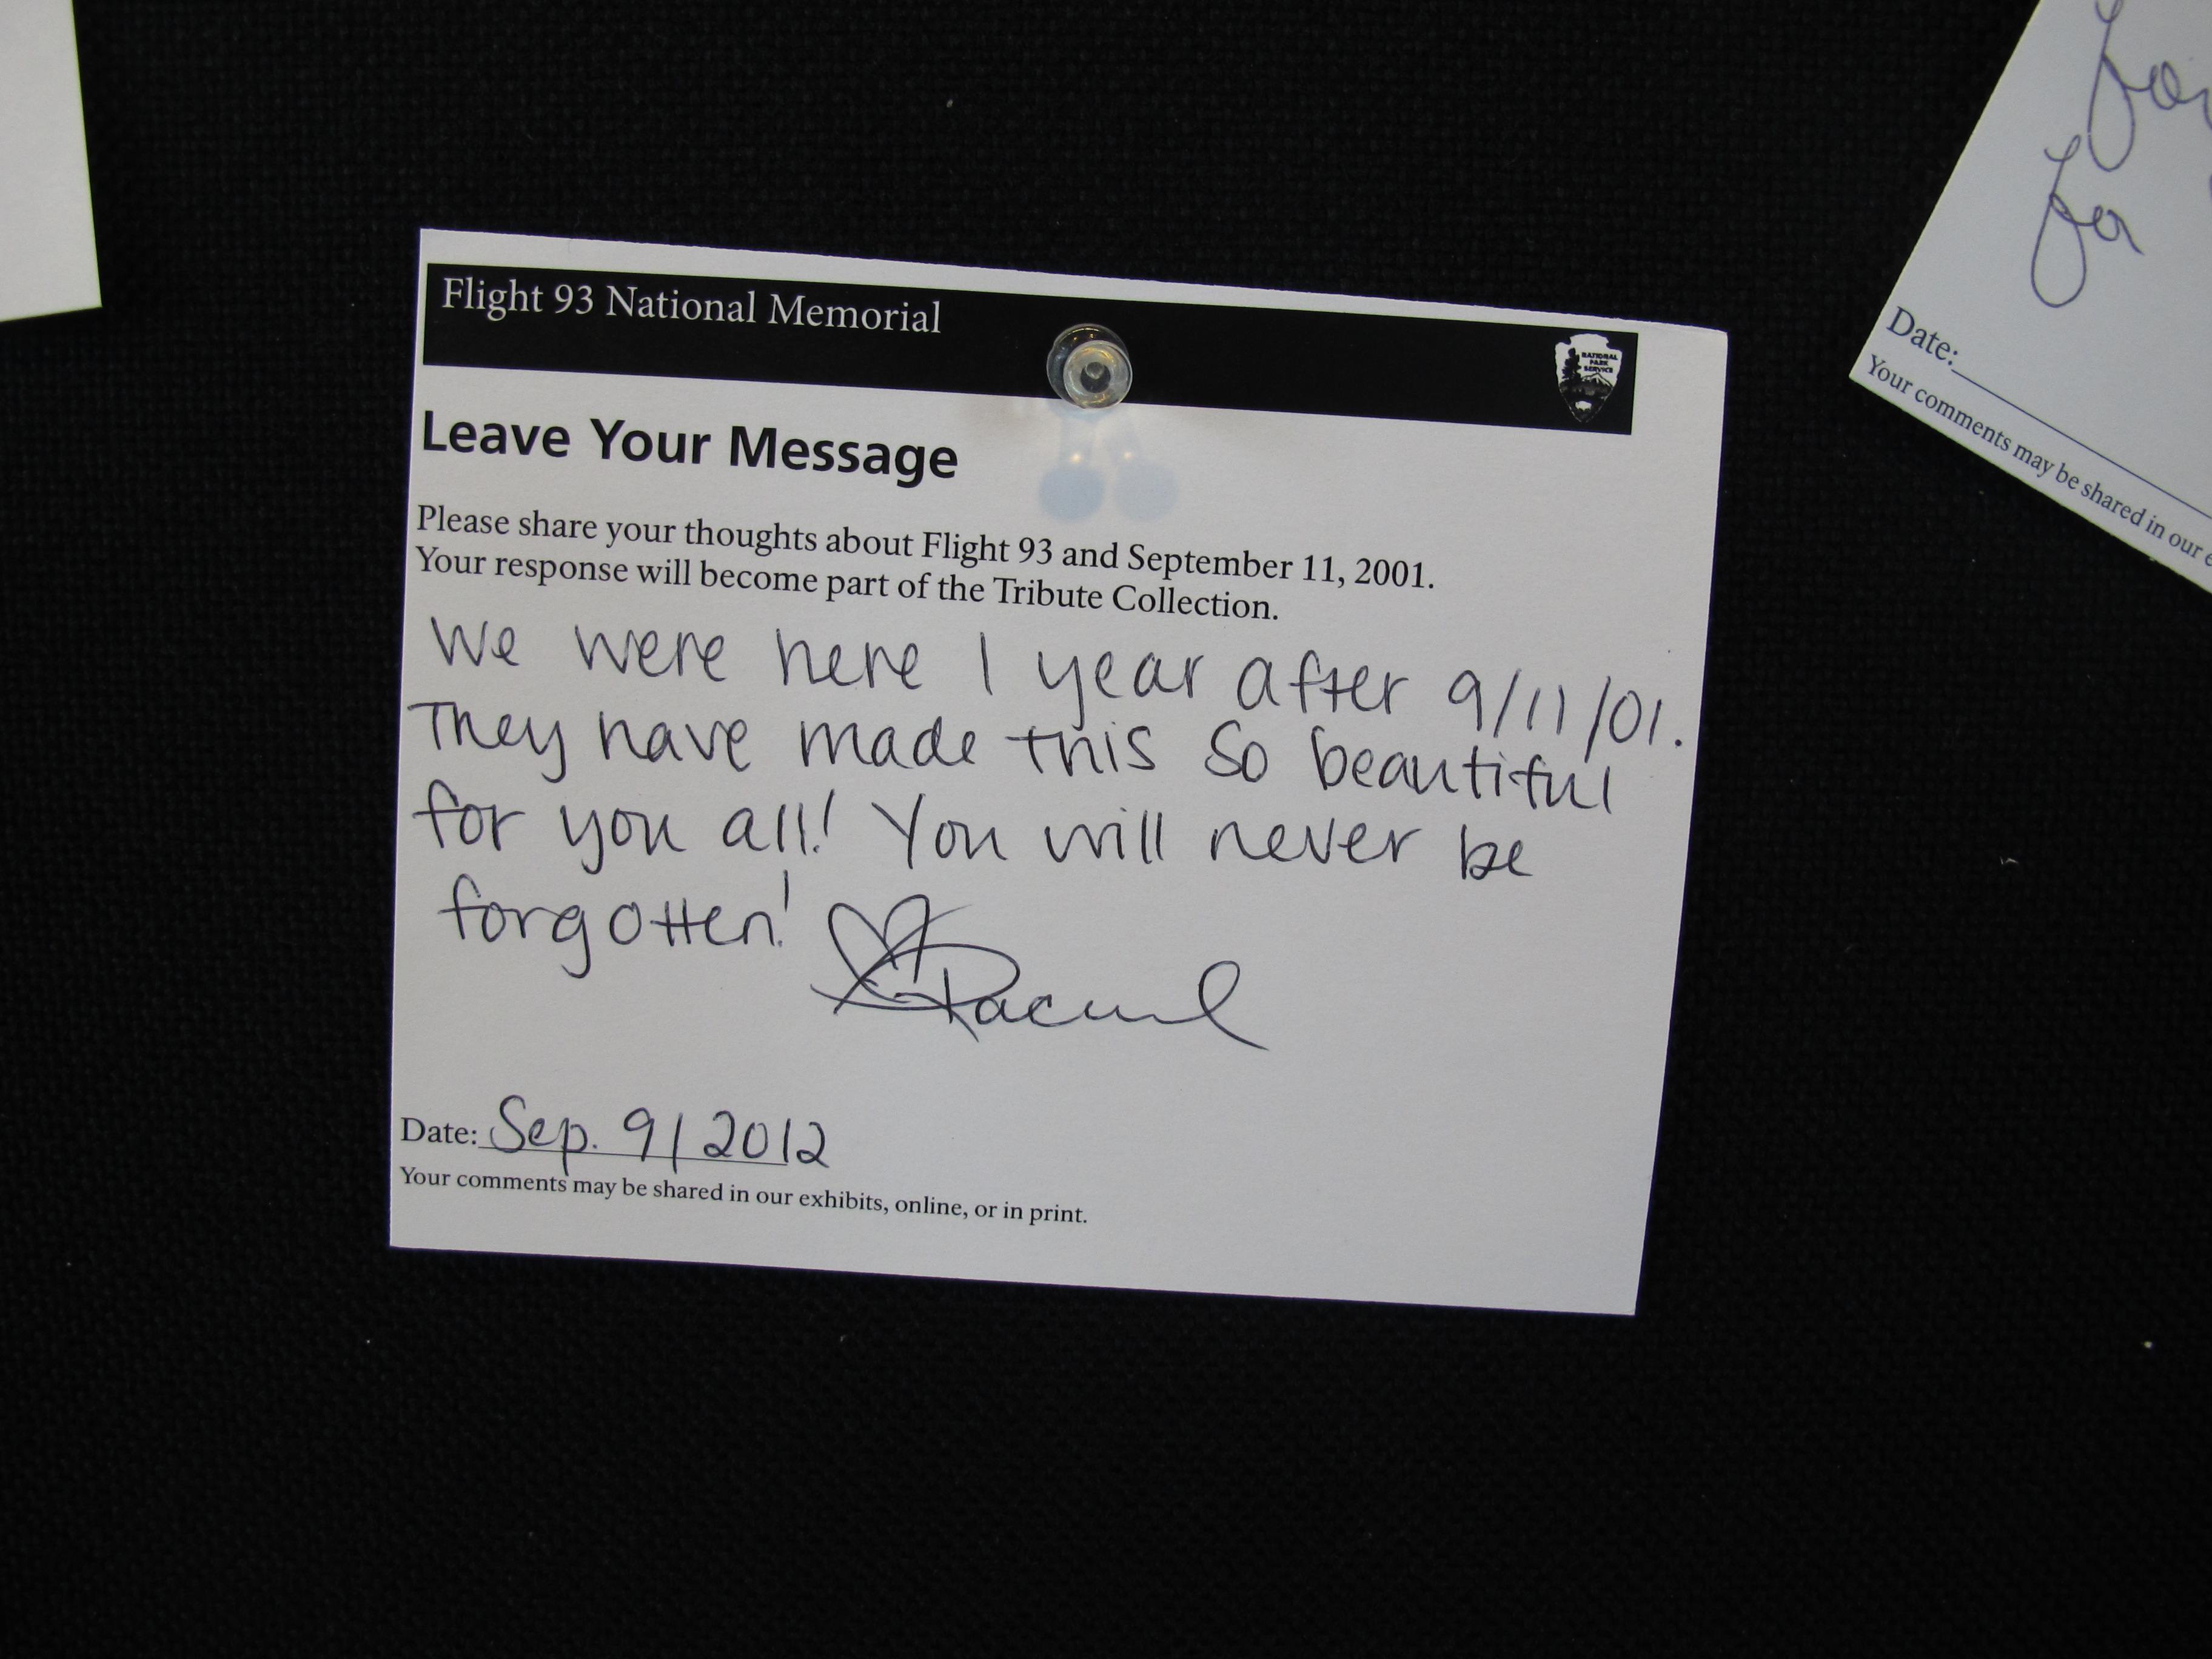 Flight 93 National Memorial
NATIONAL
PARK
SERVICE
Leave Your Message
Please share your thoughts about Flight 93 and September 11, 2001.
Your response will become part of the Tribute Collection.
We were here 1 year after 9/11/01.
They have made this so beautiful
for you all! You will never be
forgotten!
Rachel
Date: Sep. 9/2012
Your comments may be shared in our exhibits, online, or in print.
for
Date:
Your comments may be shared in our e